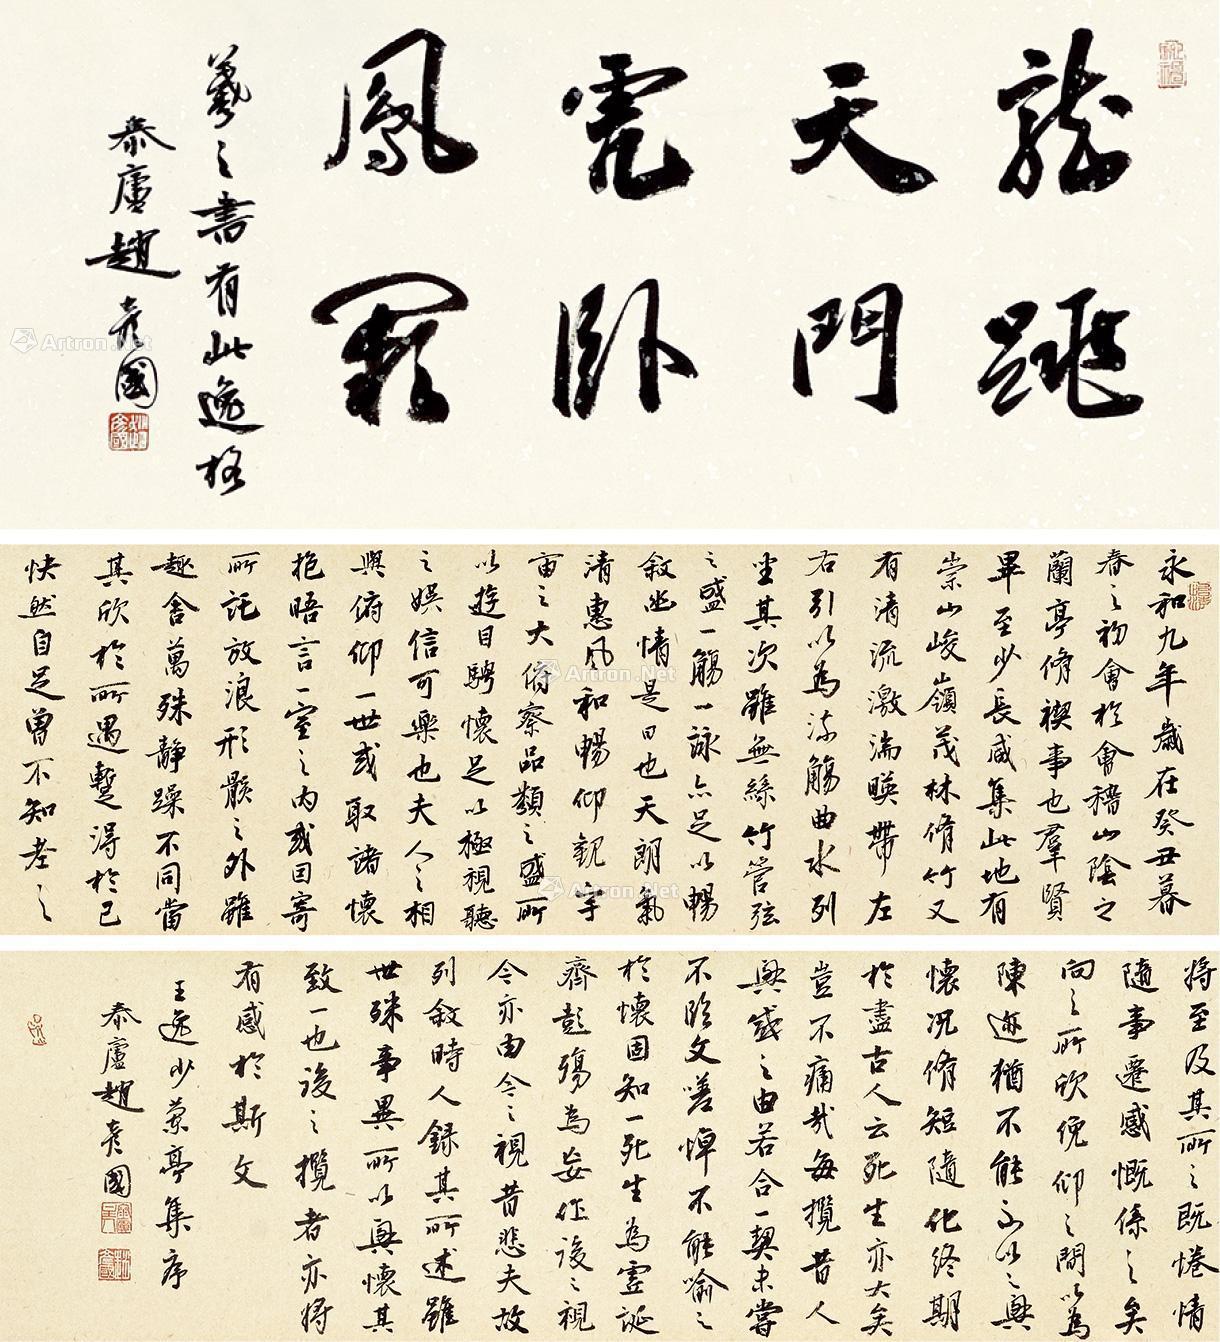 龍跳
天門
虎卧
鳳闕
羲之書有此逸格
泰廬趙彦國
永和九年歲在癸丑暮
春之初會於會稽山陰之
蘭亭脩禊事也羣賢
畢至少長咸集此地有
崇山峻嶺茂林脩竹又
有清流激湍暎帶左
右引以為流觴曲水列
坐其次雖無絲竹管弦
之盛一觴一詠亦足以暢
敘幽情是日也天朗氣
清惠風和暢仰觀宇
宙之大俯察品類之盛所
以遊目騁懷足以極視聽
之娛信可樂也夫人之相
與俯仰一世或取諸懷
抱晤言一室之內或因寄
所託放浪形骸之外雖
趣舍萬殊靜躁不同當
其欣於所遇蹔得於己
快然自足曾不知老之
將至及其所之既惓情
隨事遷感慨係之矣
向之所欣俛仰之間以為
陳迹猶不能不以之興
懷況脩短隨化終期
於盡古人云死生亦大矣
豈不痛哉每攬昔人
興感之由若合一契未嘗
不臨文嗟悼不能喻之
於懷固知一死生為虛誕
齊彭殤為妄作後之視
今亦由今之視昔悲夫故
列敘時人錄其所述雖
世殊事異所以興懷其
致一也後之攬者亦將
有感於斯文
王逸少蘭亭集序
泰廬趙彦國
Artron.Net
Artron.Net
Artron.Net
Artron.Net